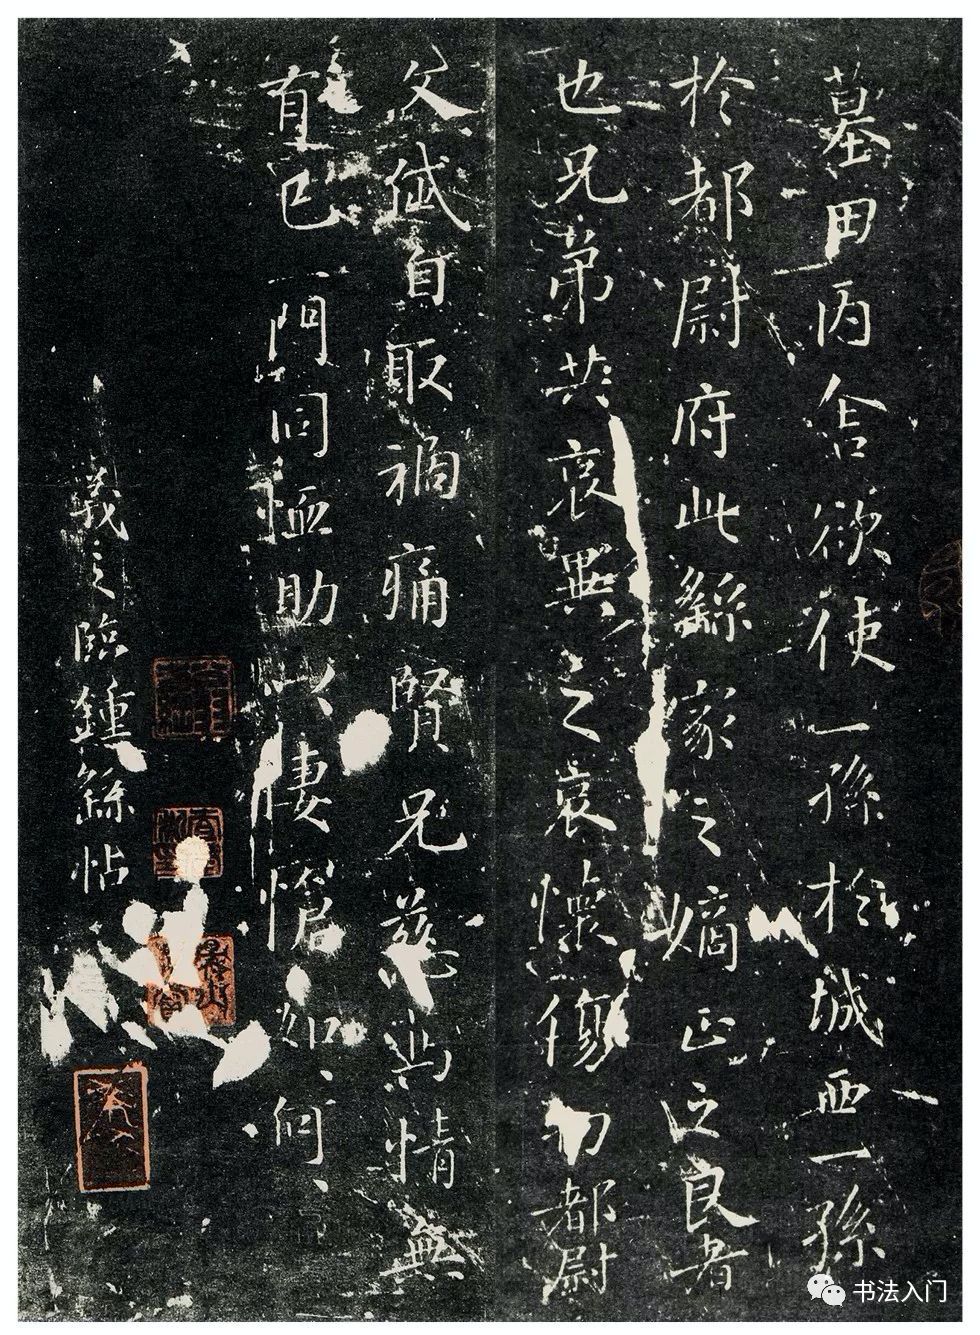 墓田丙舍欲使一孫於城西一孫
於都尉府此繇家之嫡正之良者
也兄弟共哀異之哀懷傷切都尉
文岱自取禍痛賢兄慈篤情無
有已一門同恤助以悽愴如何
羲之臨鍾繇帖
书法入门